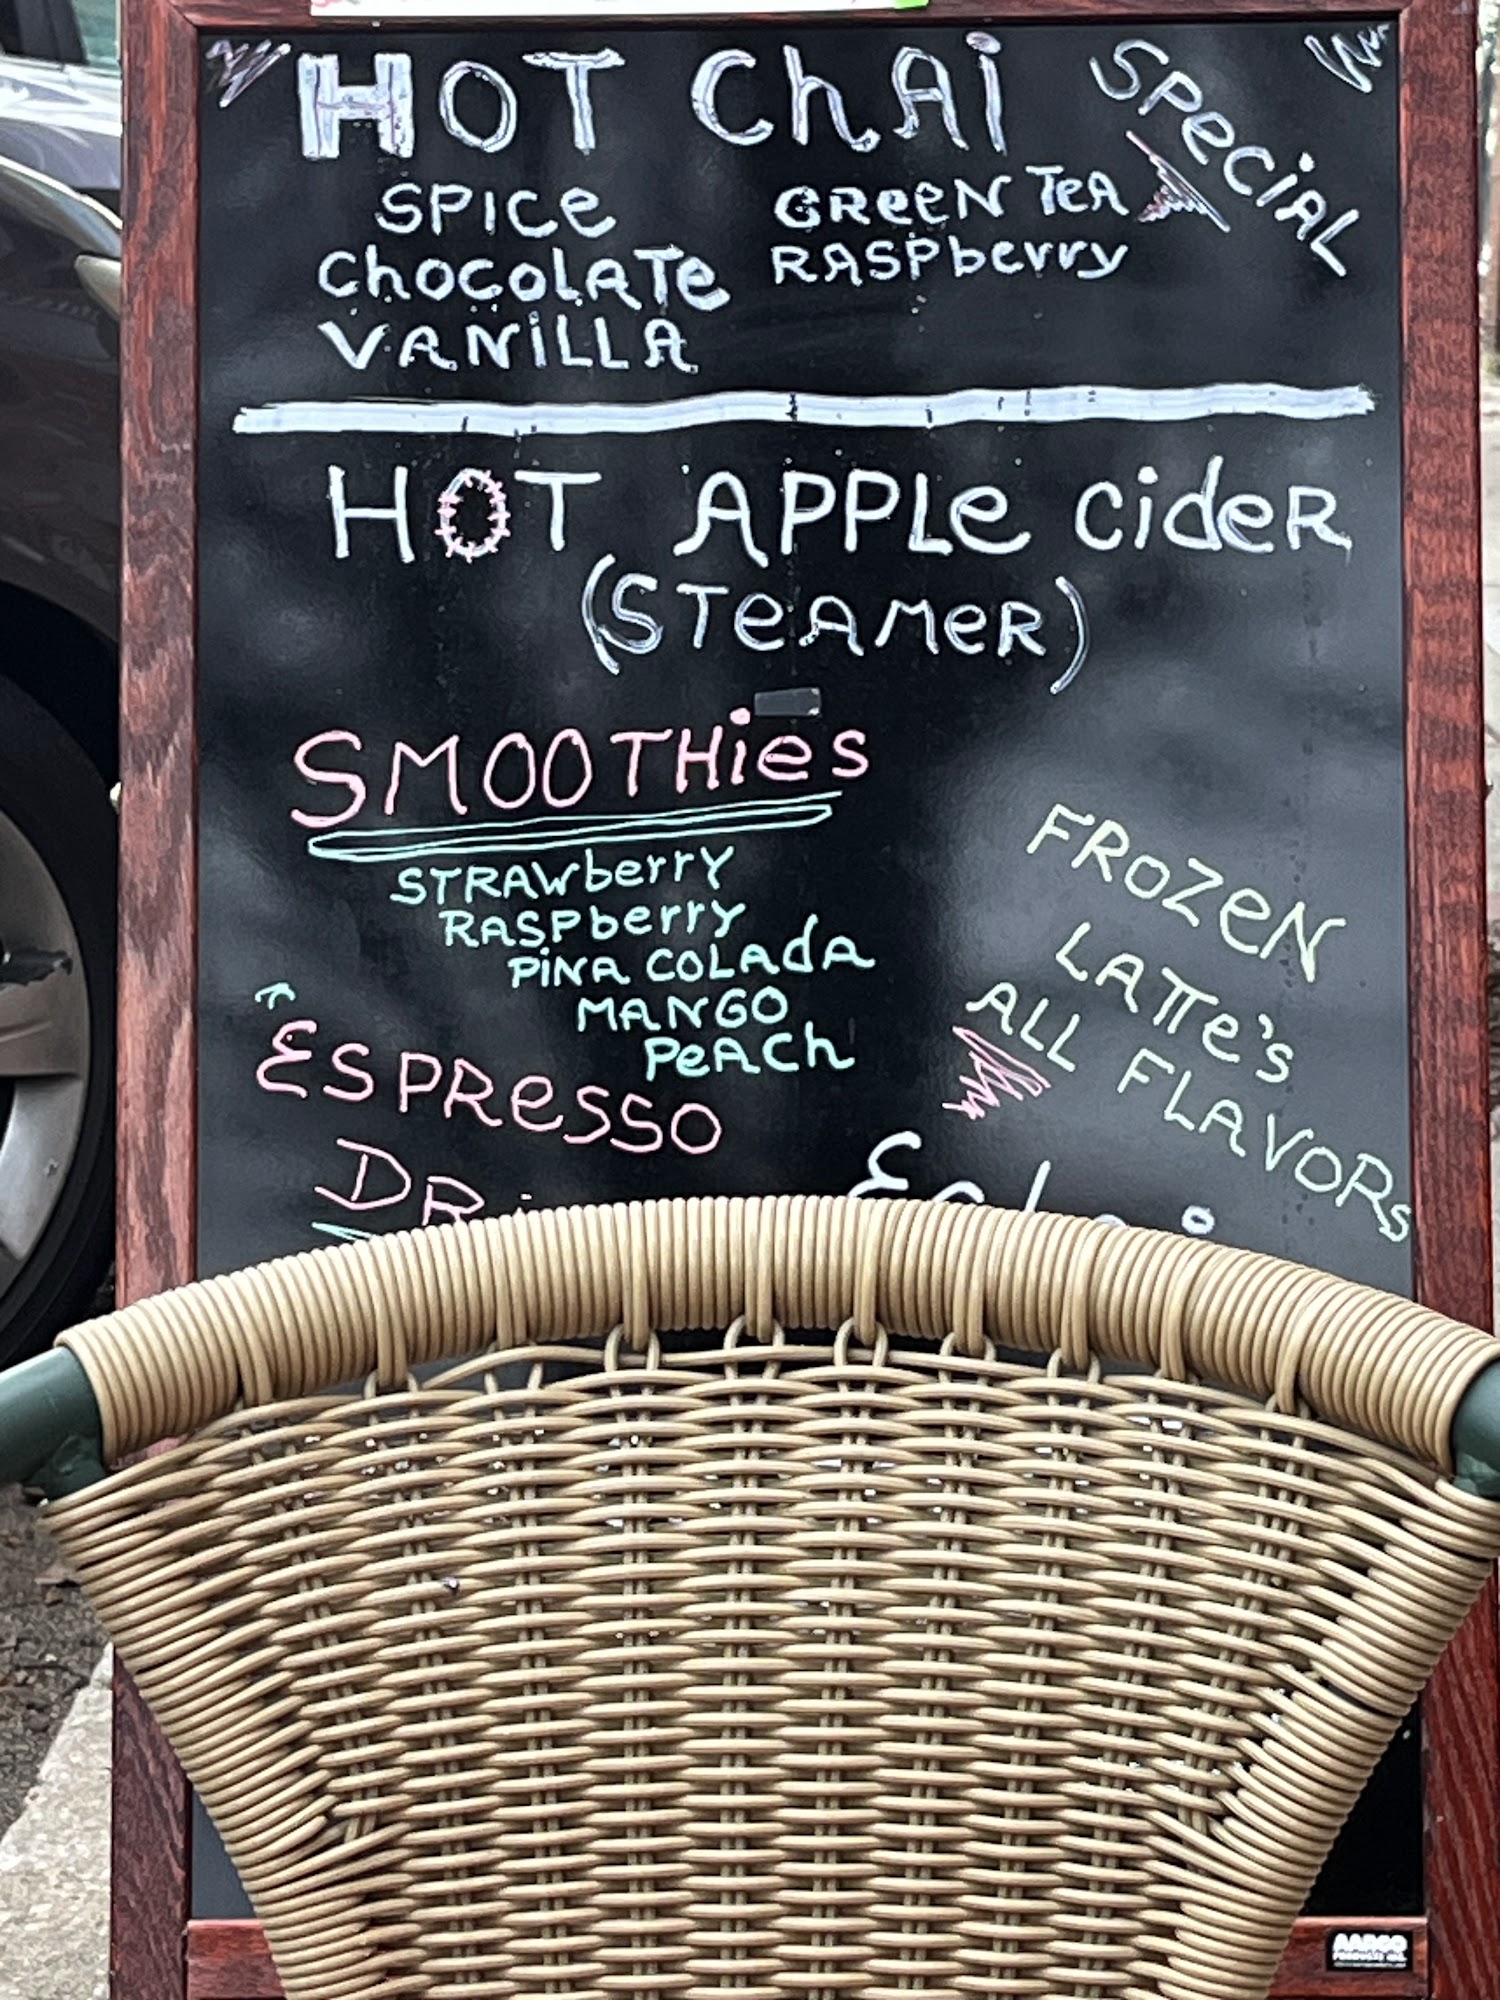 HOT ChAi SPeCiAL
SPICe
ChocolATe
VANiLLA
GReeN TeA
RASPberry
HOT APPLe CideR
(STeAMeR)
SMOOTHies
STRAWberry
RASPberry
PiNA COLAdA
MANGO
PeACh
FRoZeN
LATTe's
ALL FLAVORs
ESPResso
AARCO
PRODUCTS INC.